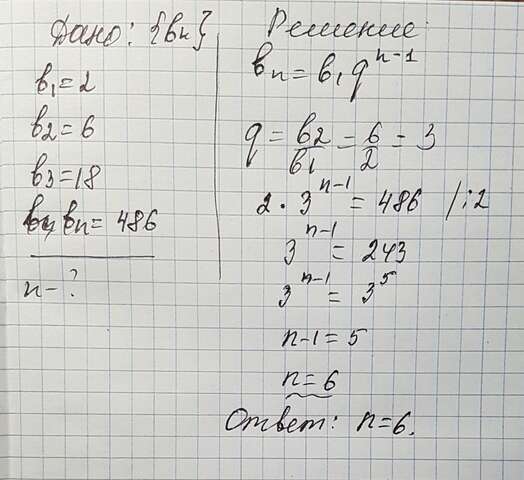 Дано: {bn}
b1 = 2
b2 = 6
b3 = 18
bn = 486
n - ?
Решение:
bn = b1 q^n-1
q = b2/b1 = 6/2 = 3
2 · 3^n-1 = 486 /:2
3^n-1 = 243
3^n-1 = 3^5
n-1 = 5
n = 6
Ответ: n = 6.